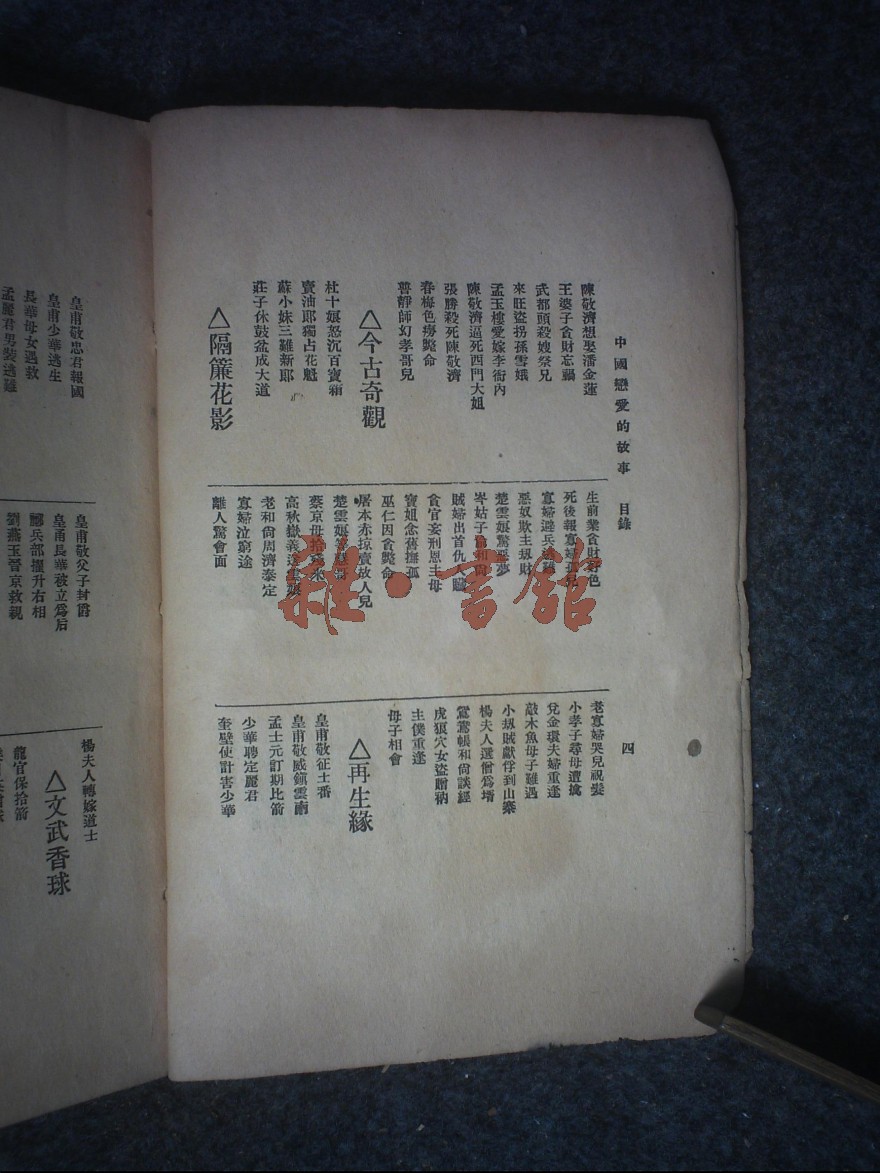 中國戀愛的故事 目錄 四
陳敬濟想娶潘金蓮
王婆子貪財忘禍
武都頭殺嫂祭兄
來旺盜拐孫雪娥
孟玉樓愛嫁李衙內
陳敬濟逼死西門大姐
張勝殺死陳敬濟
春梅色癆斃命
普靜師幻孝哥兒
△今古奇觀
杜十娘怒沉百寶箱
賣油郎獨占花魁
蘇小妹三難新郎
莊子休鼓盆成大道
△隔簾花影
生前業貪財好色
死後報寡婦孤兒
寡婦避兵逃難
惡奴欺主刼財
楚雲娘驚惡夢
岑姑子 和尙
賊婦出首仇人贓
貪官妄刑恩主母
寶姐念舊撫孤
巫仁因貪斃命
屠本赤掠賣故人兒
楚雲娘
蔡京母拾殘米
高秋嶽義送
老和尙周濟泰定
寡婦泣窮途
離人驚會面
老寡婦哭兒祝髮
小孝子尋母遭擒
兌金環夫婦重逢
敲木魚母子難遇
小刼賊獻俘到山寨
楊夫人選僧爲壻
鴛鴦帳和尙談經
虎狼穴女盜贈衲
主僕重逢
母子相會
△再生緣
皇甫敬征土番
皇甫敬威鎭雲南
孟士元訂期比箭
少華聘定麗君
奎壁使計害少華
皇甫敬忠君報國
皇甫少華逃生
長華母女遇救
孟麗君男裝逃難
皇甫敬父子封爵
皇甫長華被立爲后
酈兵部擢升右相
劉燕玉晉京救親
楊夫人轉嫁道士
△文武香球
龍官保拾箭
雜·書館